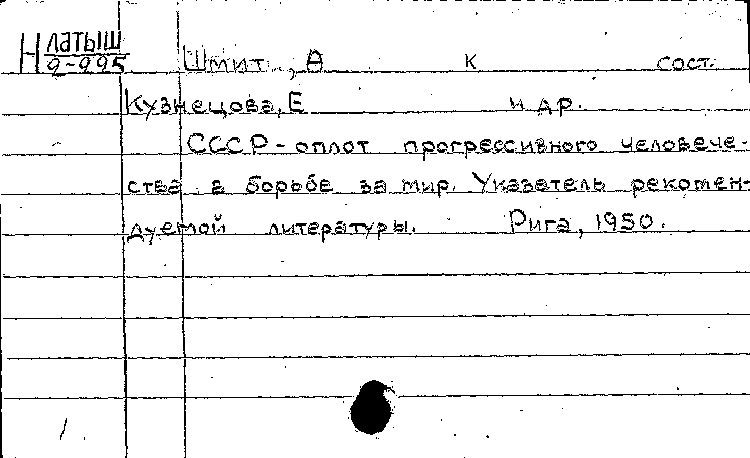 Н латыш
2-995 Шмит, А К сост.
Кузнецова, Е и др.
СССР - оплот прогрессивного человече-
ства в борьбе за мир. Указатель рекомен-
дуемой литературы. Рига, 1950.